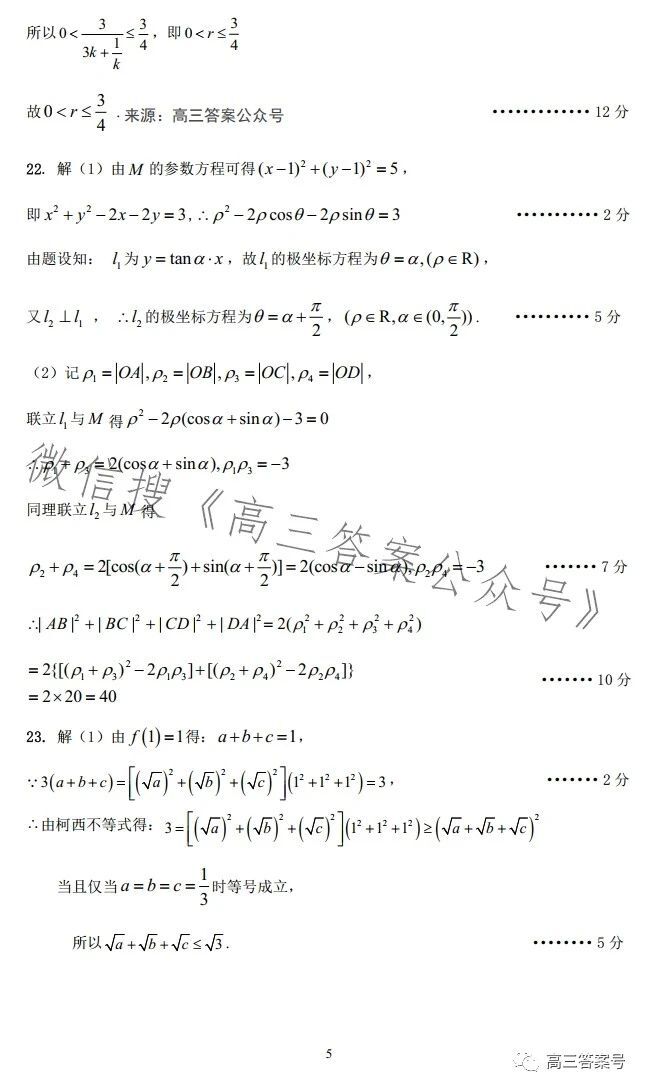 所以 0 < 3/(3k + 1/k) ≤ 3/4，即 0 < r ≤ 3/4
故 0 < r ≤ 3/4 . 来源：高三答案公众号 ············· 12 分
22. 解（1）由 M 的参数方程可得 (x−1)² + (y−1)² = 5，
即 x² + y² − 2x − 2y = 3, ∴ ρ² − 2ρcosθ − 2ρsinθ = 3 ··········· 2 分
由题设知： l₁ 为 y = tanα·x，故 l₁ 的极坐标方程为 θ = α, (ρ ∈ R)，
又 l₂ ⊥ l₁ ， ∴ l₂ 的极坐标方程为 θ = α + π/2，(ρ ∈ R, α ∈ (0, π/2)). ·········· 5 分
（2）记 ρ₁ = |OA|, ρ₂ = |OB|, ρ₃ = |OC|, ρ₄ = |OD|，
联立 l₁ 与 M 得 ρ² − 2ρ(cosα + sinα) − 3 = 0
∴ ρ₁ + ρ₃ = 2(cosα + sinα), ρ₁ρ₃ = −3
同理联立 l₂ 与 M 得
ρ₂ + ρ₄ = 2[cos(α + π/2) + sin(α + π/2)] = 2(cosα − sinα), ρ₂ρ₄ = −3 ······· 7 分
∴| AB |² + | BC |² + | CD |² + | DA |² = 2(ρ₁² + ρ₂² + ρ₃² + ρ₄²)
= 2{[(ρ₁ + ρ₃)² − 2ρ₁ρ₃] + [(ρ₂ + ρ₄)² − 2ρ₂ρ₄]} ······· 10 分
= 2×20 = 40
23. 解（1）由 f(1) = 1 得： a + b + c = 1，
∵ 3(a + b + c) = [(√a)² + (√b)² + (√c)²](1² + 1² + 1²) = 3， ······· 2 分
∴ 由柯西不等式得： 3 = [(√a)² + (√b)² + (√c)²](1² + 1² + 1²) ≥ (√a + √b + √c)²
当且仅当 a = b = c = 1/3 时等号成立，
所以 √a + √b + √c ≤ √3 . ········ 5 分
微信搜《高三答案公众号》
5
高三答案号